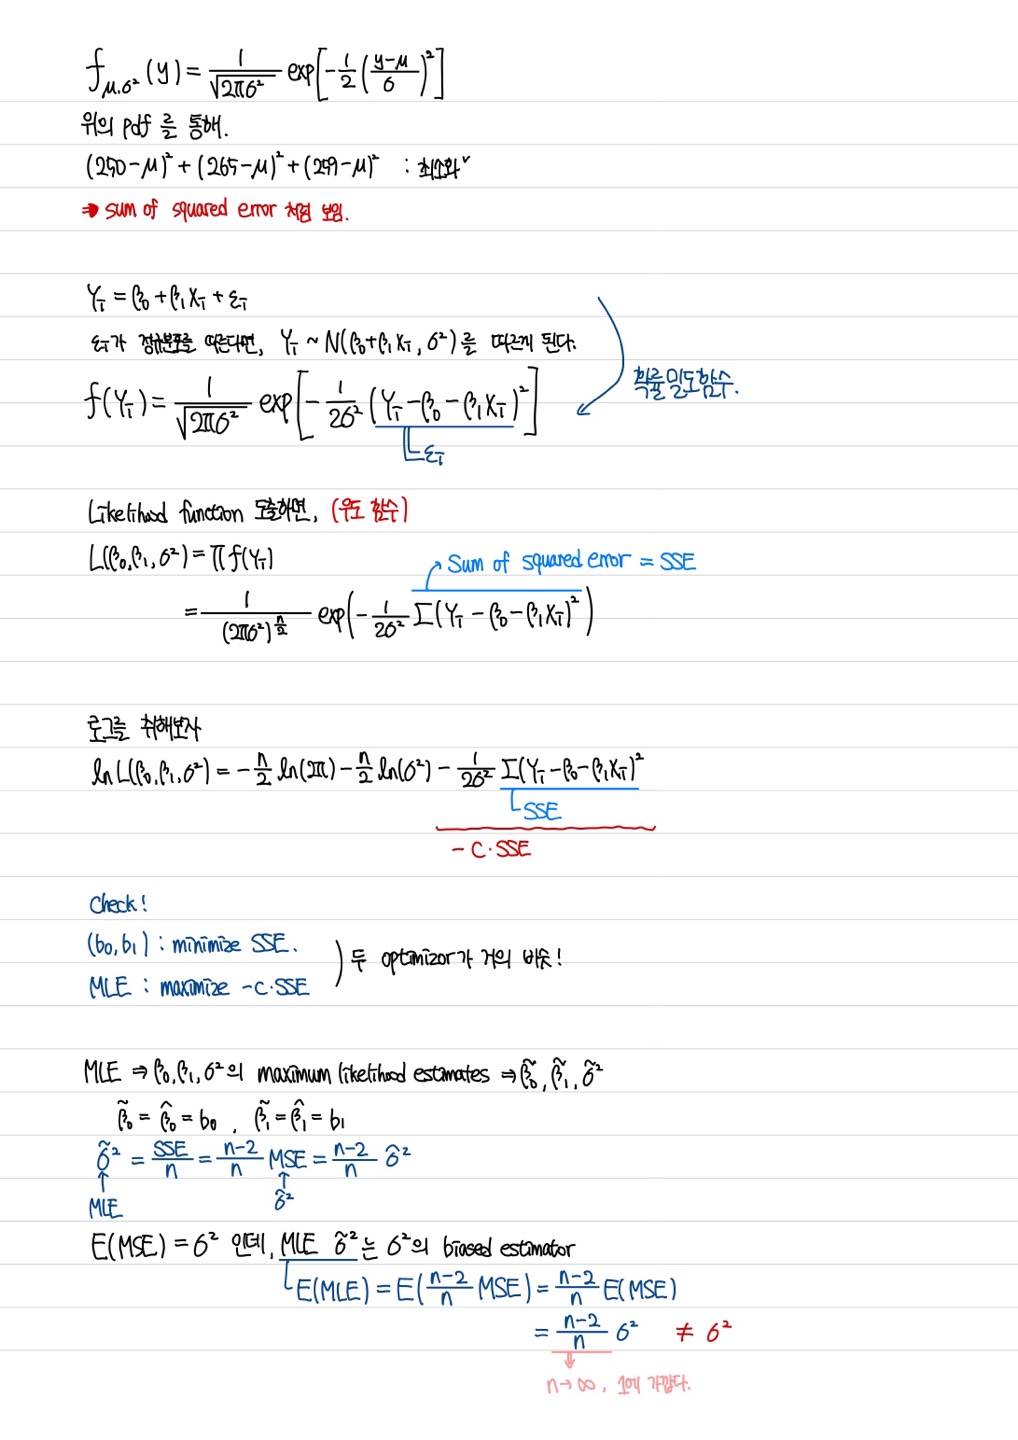 f_{μ,σ²}(y) = 1/√(2πσ²) exp[-1/2((y-μ)/σ)²]
위의 pdf 를 통해.
(250-μ)² + (265-μ)² + (259-μ)² : 최소화
⇒ sum of squared error 처럼 보임.
Yᵢ = β₀ + β₁Xᵢ + εᵢ
εᵢ가 정규분포를 따른다면, Yᵢ ~ N(β₀+β₁Xᵢ, σ²)를 따르게 된다.
확률밀도함수.
f(Yᵢ) = 1/√(2πσ²) exp[-1/(2σ²) (Yᵢ-β₀-β₁Xᵢ)²]
εᵢ
Likelihood function 도출하면, (우도 함수)
L(β₀,β₁,σ²) = Π f(Yᵢ)
Sum of squared error = SSE
= 1/(2πσ²)^{n/2} exp(-1/(2σ²) Σ(Yᵢ-β₀-β₁Xᵢ)²)
로그를 취해보자
ln L(β₀,β₁,σ²) = -n/2 ln(2π) - n/2 ln(σ²) - 1/(2σ²) Σ(Yᵢ-β₀-β₁Xᵢ)²
SSE
- C·SSE
Check!
(b₀,b₁) : minimize SSE.
두 optimizor가 거의 비슷!
MLE : maximize -C·SSE
MLE ⇒ β₀,β₁,σ²의 maximum likelihood estimates ⇒ β̃₀, β̃₁, σ̃²
β̃₀ = β̂₀ = b₀ , β̃₁ = β̂₁ = b₁
σ̃² = SSE/n = (n-2)/n MSE = (n-2)/n σ̂²
MLE σ̂²
E(MSE) = σ² 인데, MLE σ̃²는 σ²의 biased estimator
E(MLE) = E((n-2)/n MSE) = (n-2)/n E(MSE)
= (n-2)/n σ² ≠ σ²
n→∞, 1에 가깝다.